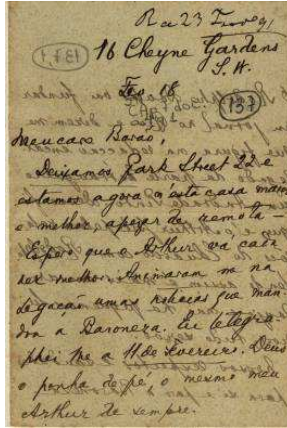 R a 23 Fever 91
(137)
16 Cheyne Gardens
S. W.
Fev. 18
(137)
Meu caro Barão,
Deixamos Park Street 22 e
estamos agora n'esta casa maior
e melhor apezar de remota —
Espero que o Arthur va cada
vez melhor. Animaram m na
Legação umas noticias que man
dou a Baroneza. Eu telegra
phei lhe a 11 de Fevereiro. Deus
o ponha de pé, o mesmo meu
Arthur de sempre.